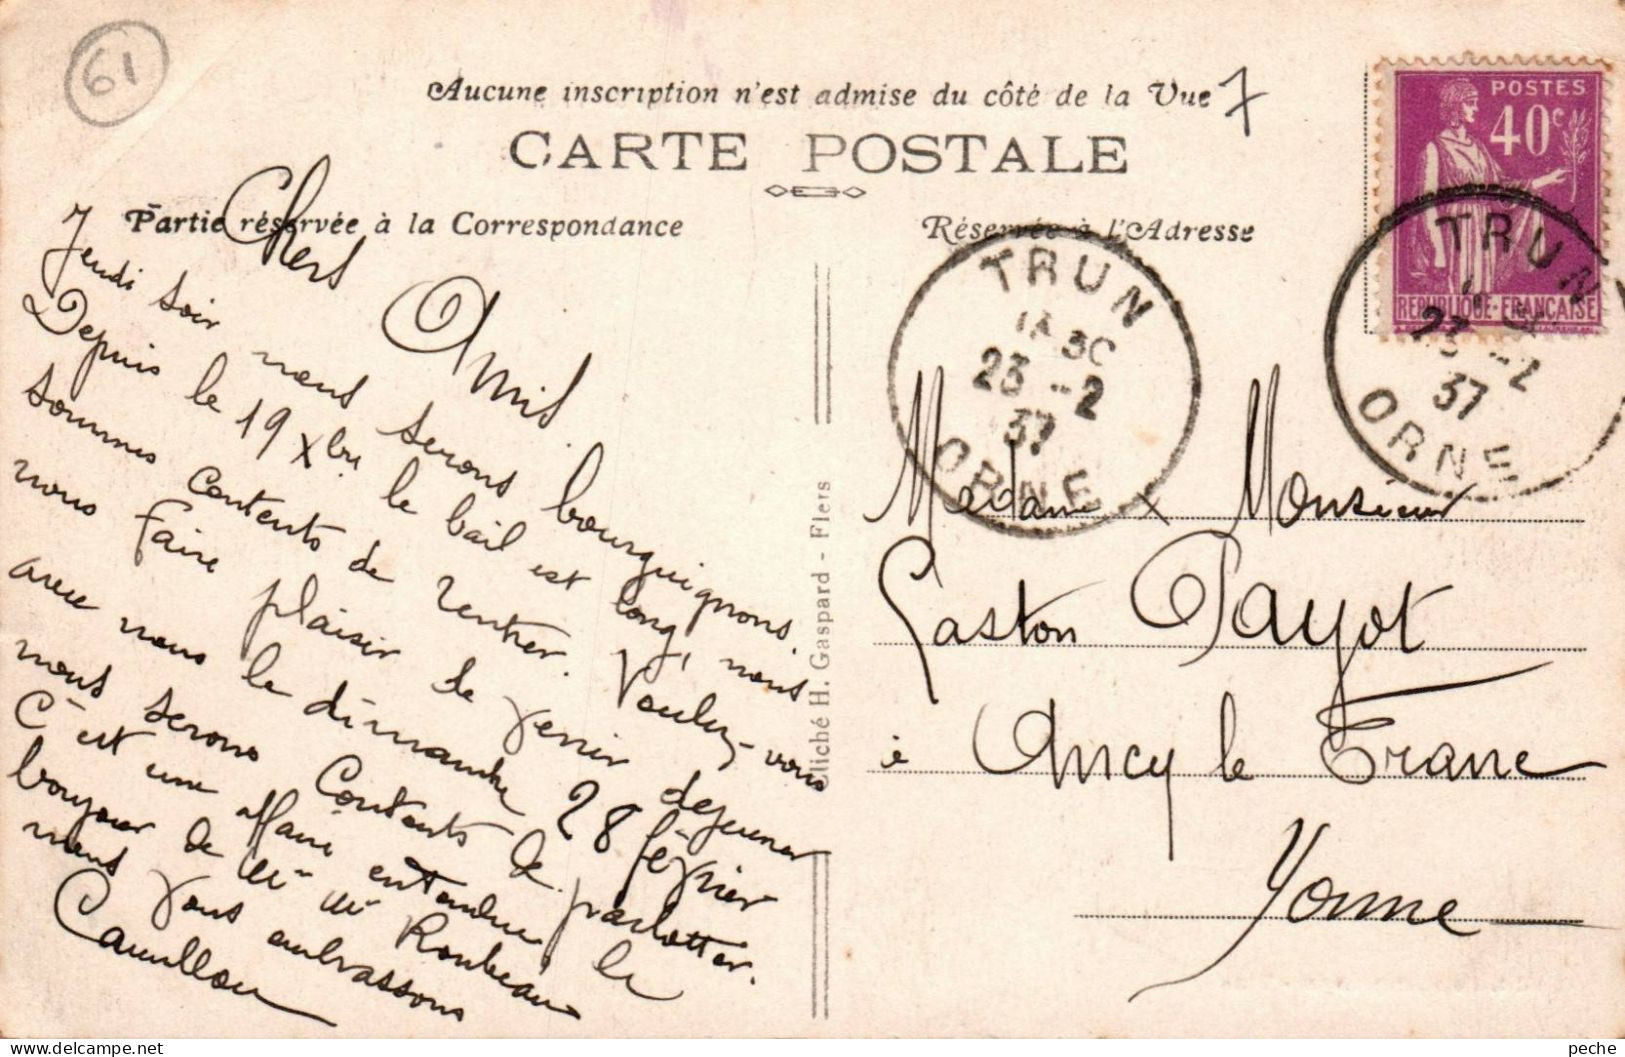 61
Aucune inscription n'est admise du côté de la Vue
7
CARTE POSTALE
Partie réservée à la Correspondance
Réservée à l'Adresse
POSTES
40c
REPUBLIQUE-FRANCAISE
TRUN
23 -2
37
ORNE
TRUN
23 -2
37
ORNE
Chers Amis
Jeudi soir nous serons bourguignons.
Depuis le 19 Xbre le bail est long, nous
sommes contents de rentrer. Voulez-vous
nous faire plaisir de venir dejeuner
avec nous le dimanche 28 février
nous serons contents de parlotter.
C'est une affaire entendue le
bonjour de Mr Me Roubeau
nous vous embrassons
Cliché H. Gaspard - Flers
Madame x Monsieur
Gaston Payot
à Ancy le Franc
Yonne
peche